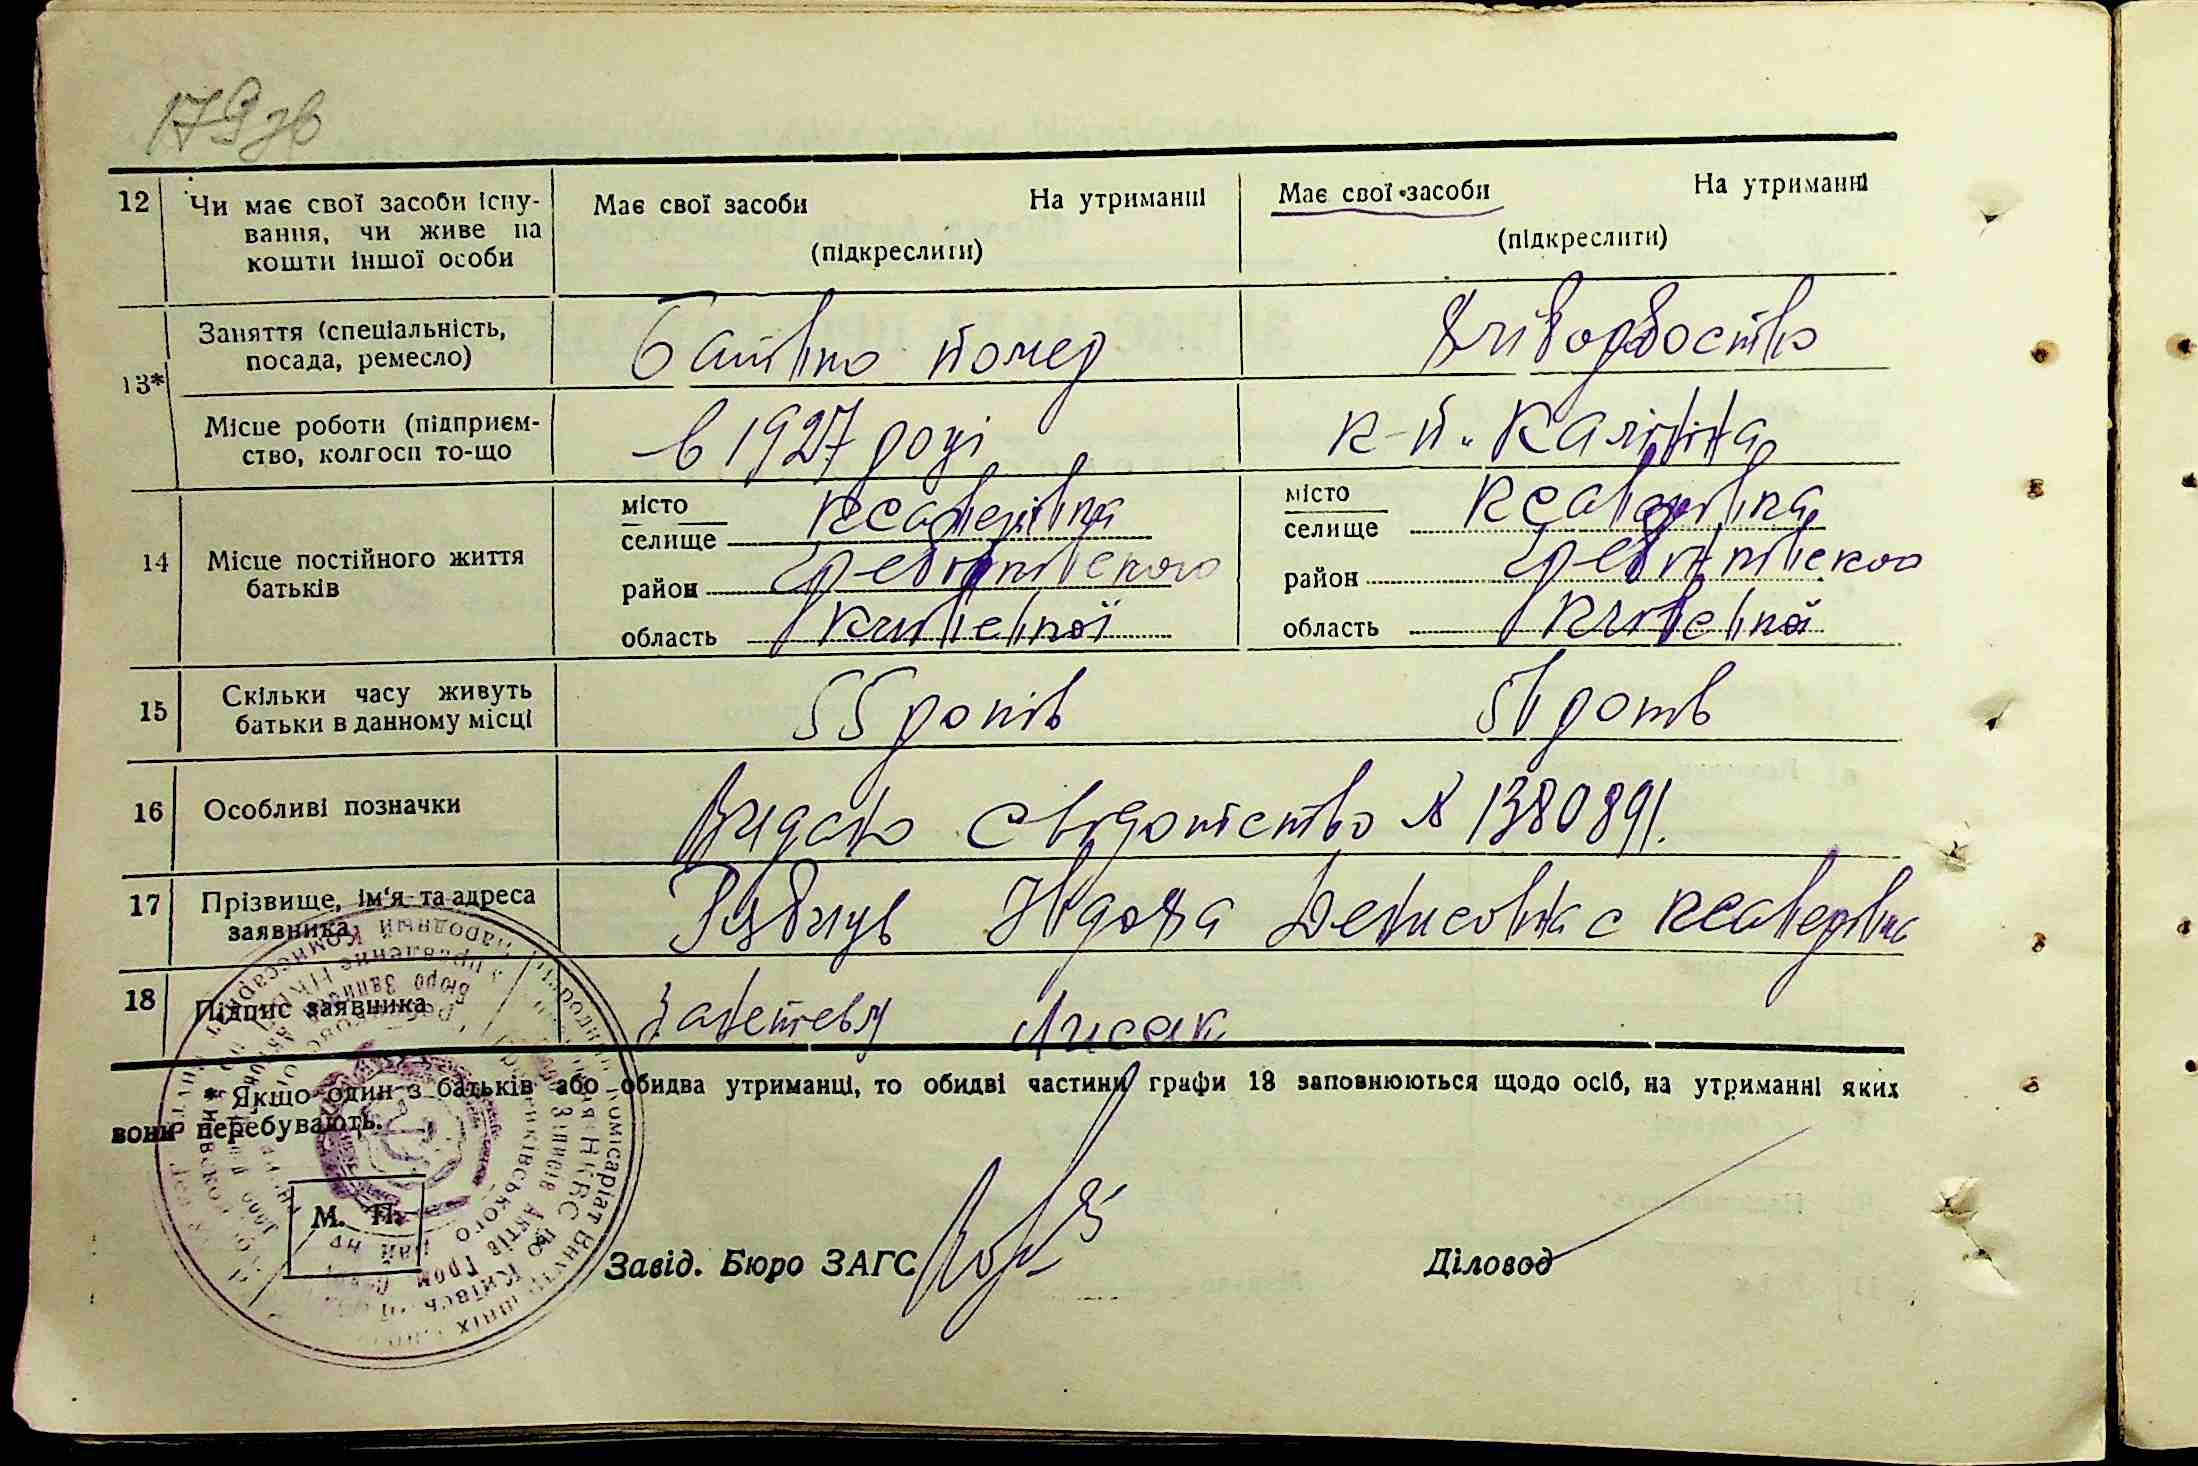 179 зв
12 Чи має свої засоби існу-
вання, чи живе на
кошти іншої особи
Має свої засоби На утриманні
(підкреслити)
Має свої засоби На утриманні
(підкреслити)
13*
Заняття (спеціальність,
посада, ремесло)
Батько помер
Хліборобство
Місце роботи (підприєм-
ство, колгосп то-що
в 1927 році
к-п. Калініна
14 Місце постійного життя
батьків
місто
селище Ксаверівка
район Гребінківского
область Київської
місто
селище Ксаверівка
район Гребінківского
область Київської
15 Скільки часу живуть
батьки в данному місці
55 років
років
16 Особливі позначки
Видано свідоцтво № 1380891.
17 Прізвище, ім'я та адреса
заявника
Денисовна с Ксаверівка
18 Підпис заявника
Лисак
* Якщо один з батьків або обидва утриманці, то обидві частини графи 13 заповнюються щодо осіб, на утриманні яких
вони перебувають.
М. П.
Завід. Бюро ЗАГС
Діловод